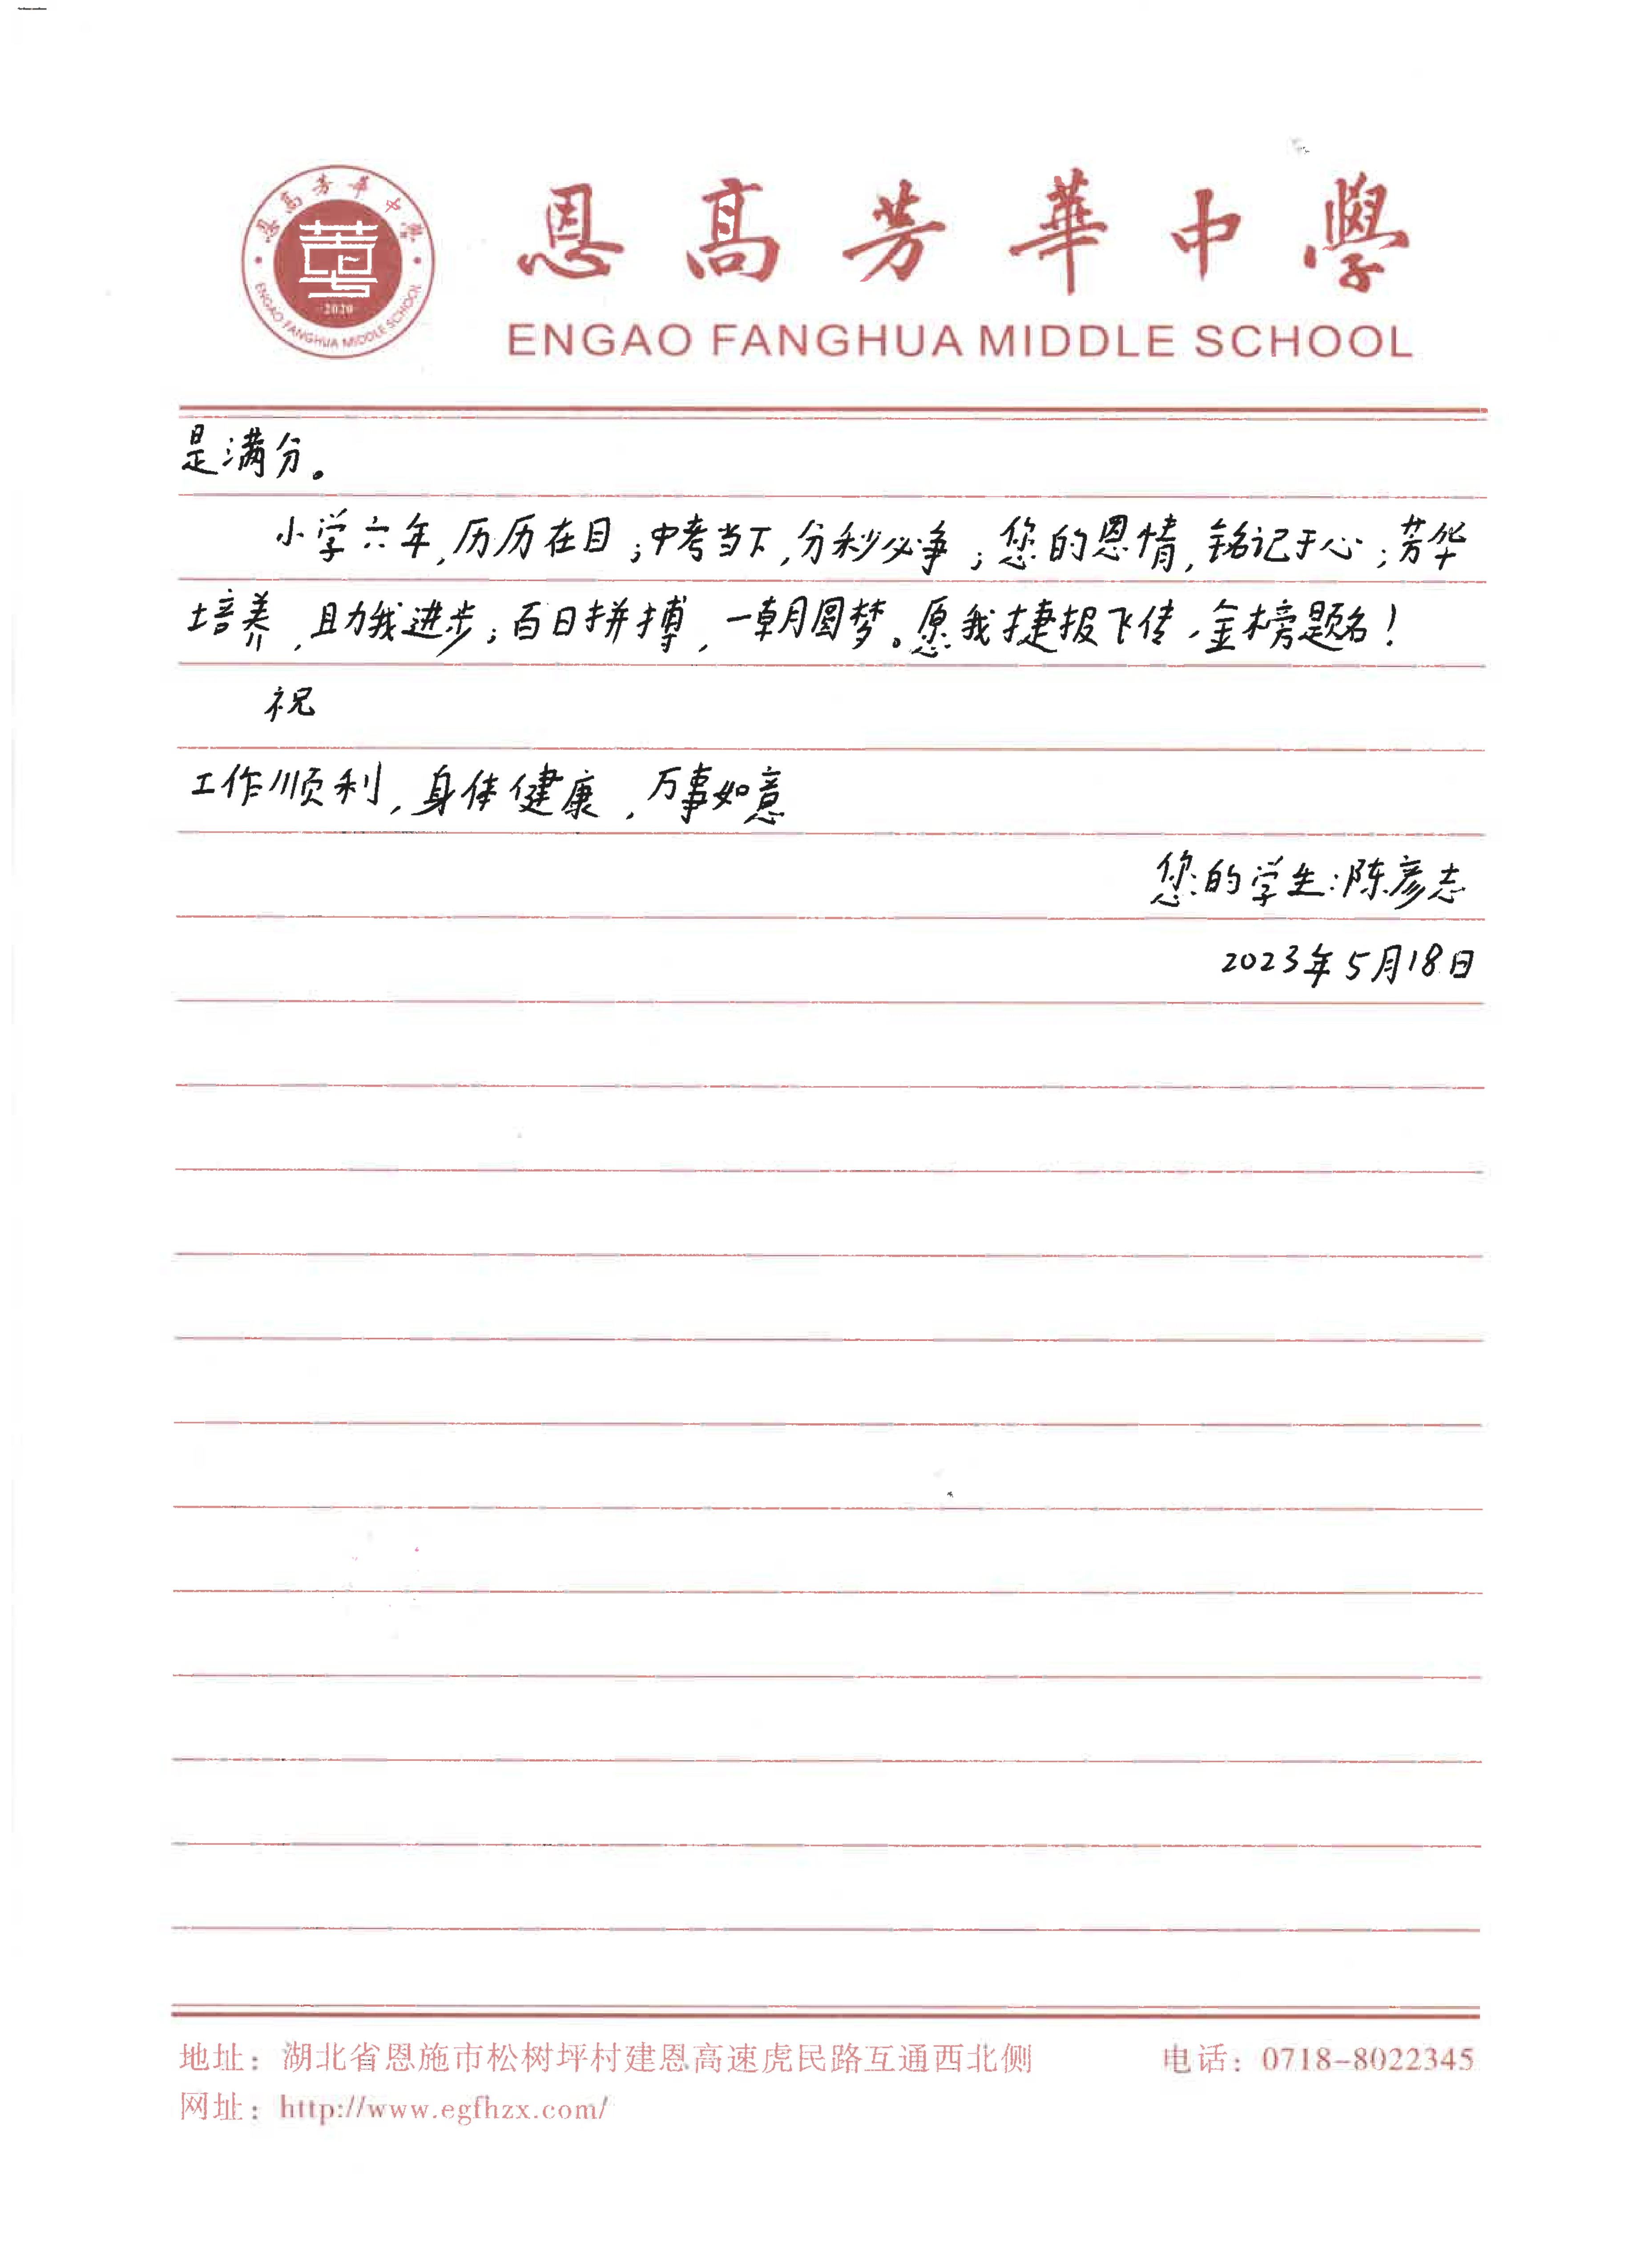 恩高芳華中學
ENGAO FANGHUA MIDDLE SCHOOL
2020
恩高芳華中學
ENGAO FANGHUA MIDDLE SCHOOL
是满分。
小学六年,历历在目;中考当下,分秒必争;您的恩情,铭记于心;芳华
培养,助我进步;百日拼搏,一朝圆梦。愿我捷报飞传,金榜题名!
祝
工作顺利,身体健康,万事如意
您的学生:陈彦志
2023年5月18日
地址:湖北省恩施市松树坪村建恩高速虎民路互通西北侧
电话:0718-8022345
网址:http://www.egfhzx.com/